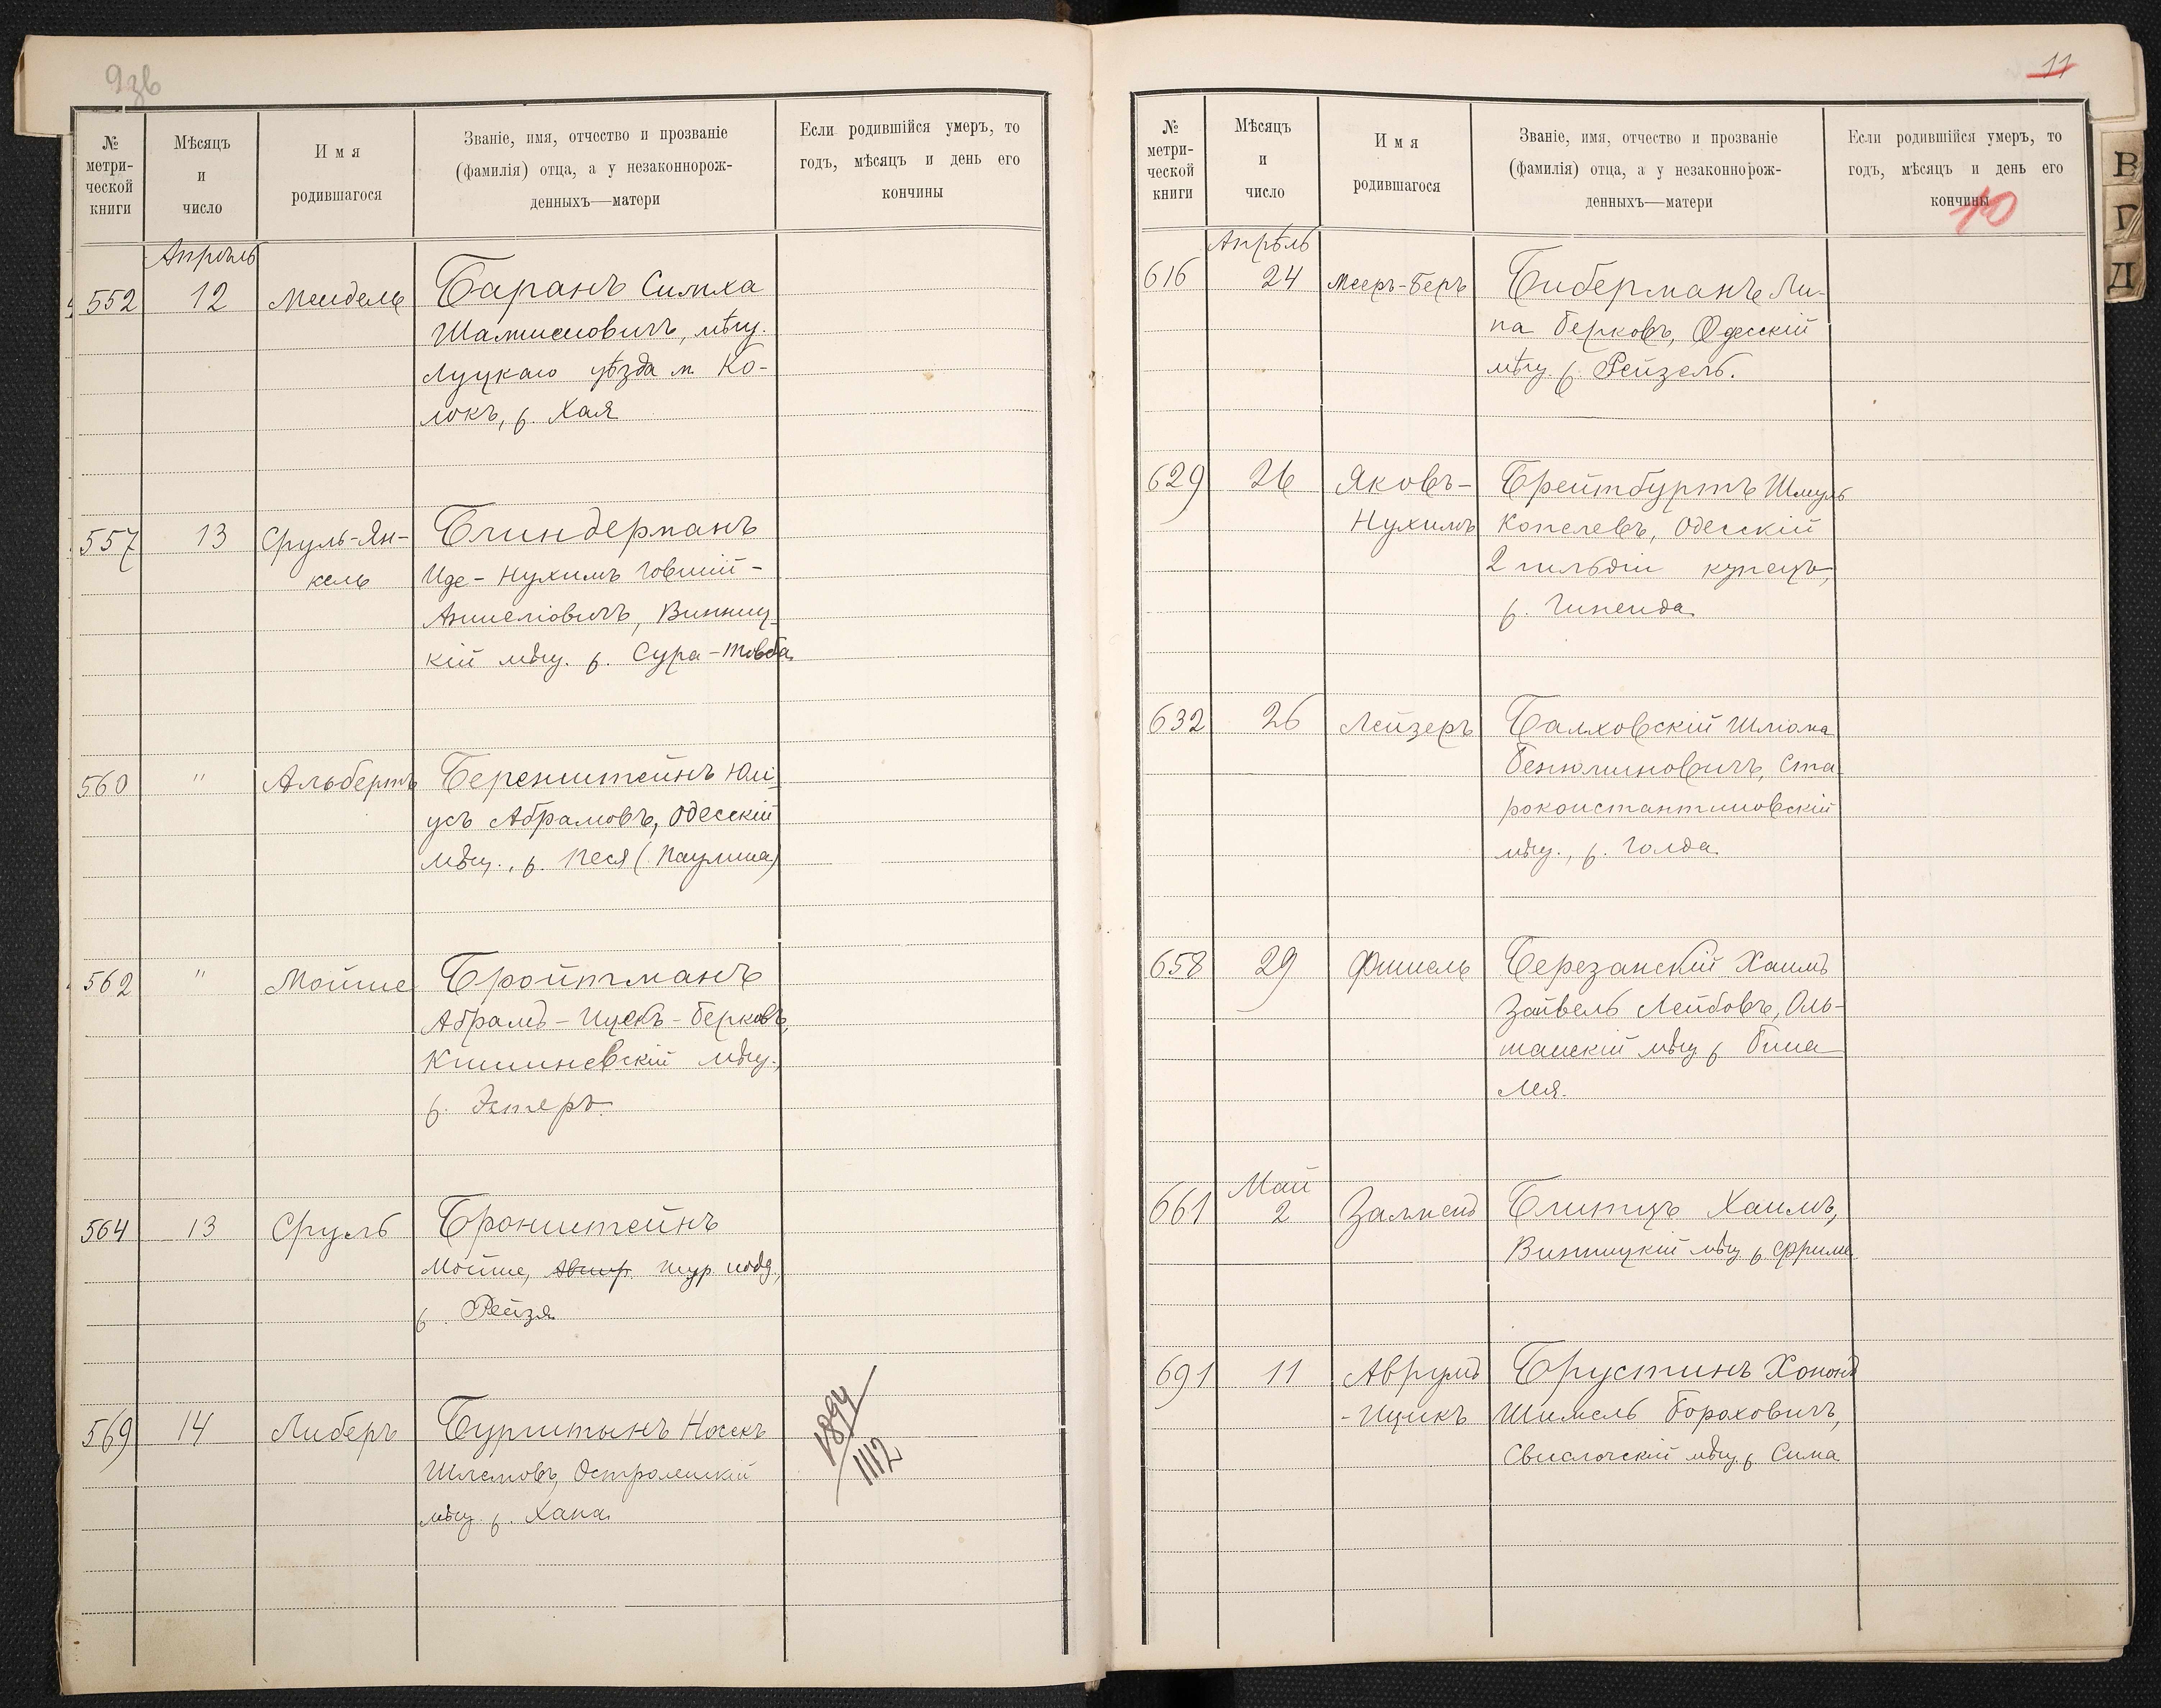 № метри-ческой книги
Мѣсяцъ и число
Имя родившагося
Званіе, имя, отчество и прозваніе
(фамилія) отца, а у незаконнорож-
денныхъ—матери
Если родившійся умеръ, то
годъ, мѣсяцъ и день его
кончины
Апрѣль
552 12 Мендель Баранъ Симха
мѣщ.
Луцкаго уѣзда м. Ко-
локъ, ж. Хая
557 13 Сруль-Ян- Блиндерманъ
кель Иде-Нухимъ
Винниц-
кій мѣщ. ж. Сура-Товба
560 " Альбертъ Беренштейнъ Юлі-
усъ Абрамовъ, Одесскій
мѣщ., ж. Песя (Паулина)
562 " Мойше Бройтманъ
Абрамъ-Ицекъ-Берковъ,
Кишиневскій мѣщ.,
ж. Эстеръ.
564 13 Сруль Бронштейнъ
Мойше, тур. подд.,
ж. Рейзя
569 14 Либеръ Бурштынъ
Шлемовъ,
мѣщ. ж. Хана
1894
1112
11
№ метри-ческой книги
Мѣсяцъ и число
Имя родившагося
Званіе, имя, отчество и прозваніе
(фамилія) отца, а у незаконнорож-
денныхъ—матери
Если родившійся умеръ, то
годъ, мѣсяцъ и день его
кончины
10
В
Г
Д
Апрѣль
616 24 Мееръ-Беръ Биберманъ Ли-
па Берковъ, Одесскій
мѣщ. ж. Рейзель.
629 26 Яковъ- Брейтбуртъ Шмуль
Нухимъ Копелевъ, Одесскій
2 гильдіи купецъ,
ж. Гиненда
632 26 Лейзеръ Балховскій Шлiома
Беньюминовичъ, Ста-
роконстантиновскій
мѣщ., ж. Голда
658 29 Фишель Березанскій Хаимъ
Зайвель Лейбовъ, Оль-
шанскій мѣщ. ж. Бина
Лея.
Май
661 2 Залменъ Блитцъ Хаимъ,
Винницкій мѣщ. ж. Фрима
691 11 Аврумъ Брустинъ Хононъ
-Ицикъ Шимель Бороховичъ,
Свислочскій мѣщ. ж. Сима